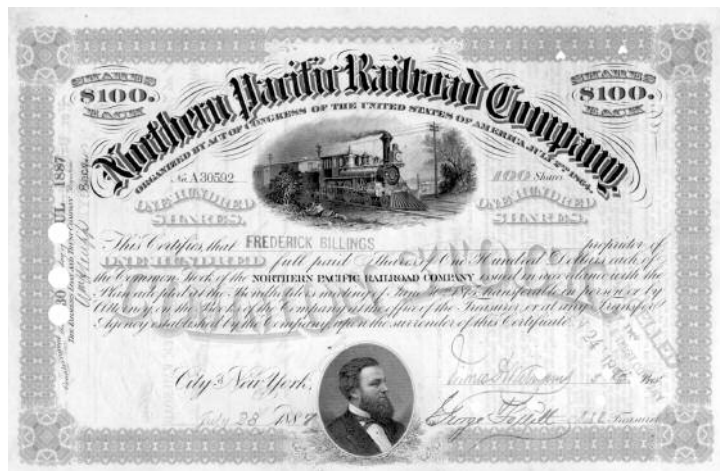 SHARES
$100.
EACH
SHARES
$100.
EACH
Northern Pacific Railroad Company,
ORGANIZED BY ACT OF CONGRESS OF THE UNITED STATES OF AMERICA, JULY 2ND 1864.
No. A30592
100 Shares
ONE HUNDRED
SHARES.
ONE HUNDRED
SHARES.
This Certifies that FREDERICK BILLINGS proprietor of
ONE HUNDRED full paid Shares of One Hundred Dollars each, of
the Common Stock of the NORTHERN PACIFIC RAILROAD COMPANY issued in accordance with the
Plan adopted at the Bondholders meeting of June 1875. Transferable in person or by
Attorney, on the Books of the Company at the office of the Treasurer or at any Transfer
Agency established by the Company, upon the surrender of this Certificate.
City of New York,
July 28 1887
George Prest.
Treasurer
Countersigned this 30 day of JUL 1887
THE FARMERS LOAN AND TRUST COMPANY
24